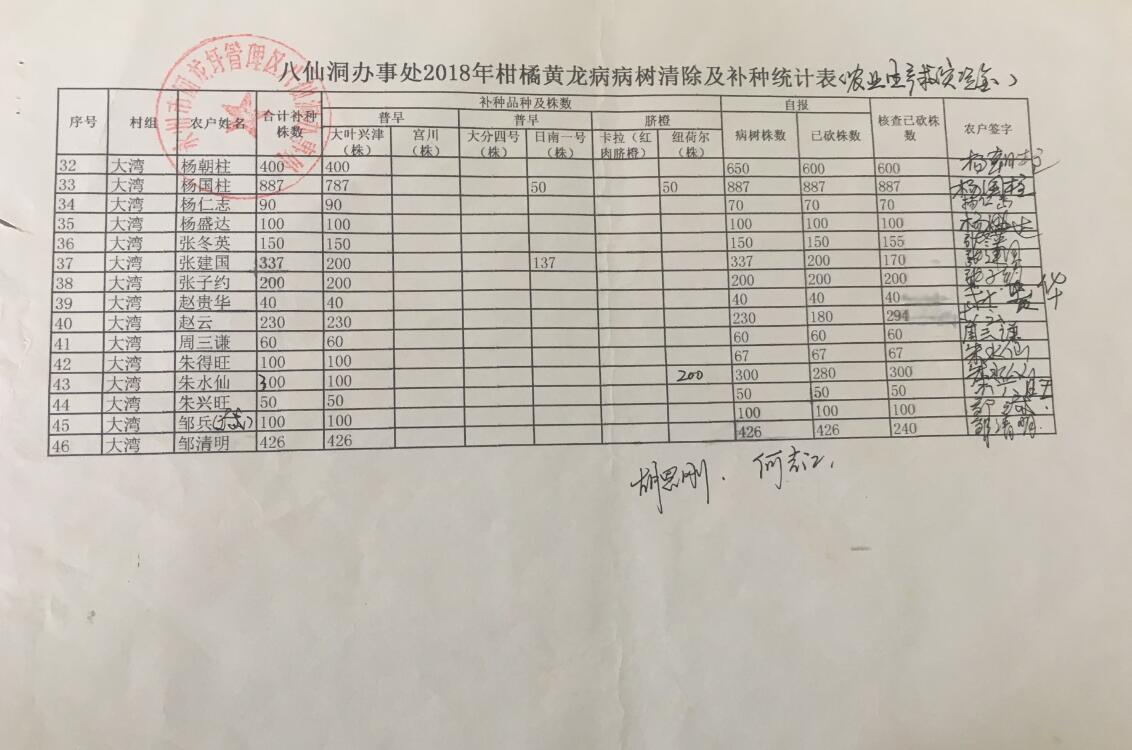 八仙洞办事处2018年柑橘黄龙病病树清除及补种统计表(农业生产救灾资金)
序号 村组 农户姓名 合计补种株数 补种品种及株数 自报 核查已砍株数 农户签字
普早 普早 脐橙 病树株数 已砍株数
大叶兴津(株) 宫川(株) 大分四号(株) 日南一号(株) 卡拉(红肉脐橙) 纽荷尔(株)
32 大湾 杨朝柱 400 400 650 600 600
33 大湾 杨国柱 887 787 50 50 887 887 887 杨国柱
34 大湾 杨仁志 90 90 70 70 70
35 大湾 杨盛达 100 100 100 100 100
36 大湾 张冬英 150 150 150 150 155 张冬英
37 大湾 张建国 337 200 137 337 200 170 张建国
38 大湾 张子约 200 200 200 200 200 张子约
39 大湾 赵贵华 40 40 40 40 40
40 大湾 赵云 230 230 230 180 294
41 大湾 周三谦 60 60 60 60 60 周三谦
42 大湾 朱得旺 100 100 67 67 67 朱水仙
43 大湾 朱水仙 300 100 200 300 280 300 朱水仙
44 大湾 朱兴旺 50 50 50 50 50
45 大湾 邹兵 100 100 100 100 100
46 大湾 邹清明 426 426 426 426 240 邹清明
胡思刚. 何志江.